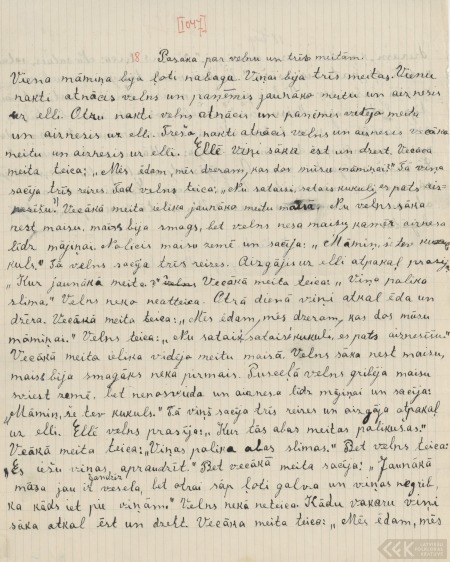 [1047]
18. Pasaka par velnu un trīs meitām.
Viena māmiņa bija ļoti nabaga. Viņai bija trīs meitas. Vienu
nakti atnācis velns un paņēmis jaunāko meitu un aiznesis
uz elli. Otru nakti velns atnācis un paņēmis vidējo meitu
un aiznesis uz elli. Trešo nakti atnācis velns un aiznesis vecāko
meitu un aiznesis uz elli. Ellē viņi sāka ēst un dzert. Vecākā
meita teica: „Mēs ēdam, mēs dzeram, kas dos mūsu māmiņai?" Tā viņa
sacīja trīs reizes. Tad velns teica: „Nu sataisi, sataisi kukuli, es pats aiz-
nesīšu." Vecākā meita ielika jaunāko meitu maisā. Nu velns sāka
nest maisu, maiss bija smags, bet velns nesa maisu kamēr aiznesa
līdz mājiņai. Nolicis maiso zemē un sacīja: „Māmiņ, še tev kuku-
kuls." Tā velns sacīja trīs reizes. Aizgājis uz elli atpakaļ prasīja
„Kur jaunākā meita?" Vecākā meita teica: „Viņa palika
slima." Velns neko neatteica. Otrā dienā viņi atkal ēda un
dzēra. Vecākā meita teica: „Mēs ēdam, mēs dzeram, kas dos mūsu
māmiņai." Velns teica: „Nu sataisi, sataisi kukuli, es pats aiznesīšu."
Vecākā meita ielika vidējo meitu maisā. Velns sāka nest maisu,
maiss bija smagāks nekā pirmais. Pusceļā velns gribēja maisu
sviest zemē, bet nenosvieda un aiznesa līdz mājiņai un sacīja:
„Māmiņ, še tev kukuls." Tā viņš sacīja trīs reizes un aizgāja atpakaļ
uz elli. Ellē velns prasīja: „Kur tās abas meitas palikušas."
Vecākā meita teica: „Viņas palika abas slimas." Bet velns teica:
„Es iešu viņas apraudzīt." Bet vecākā meita sacīja: „Jaunākā
māsa jau ir vesela, bet otrai sāp ļoti galva un viņas negrib,
ka kāds iet pie viņām." Velns nekā neteica. Kādu vakaru viņi
sāka atkal ēst un dzert. Vecāka meita teica: „Mēs ēdam, mēs